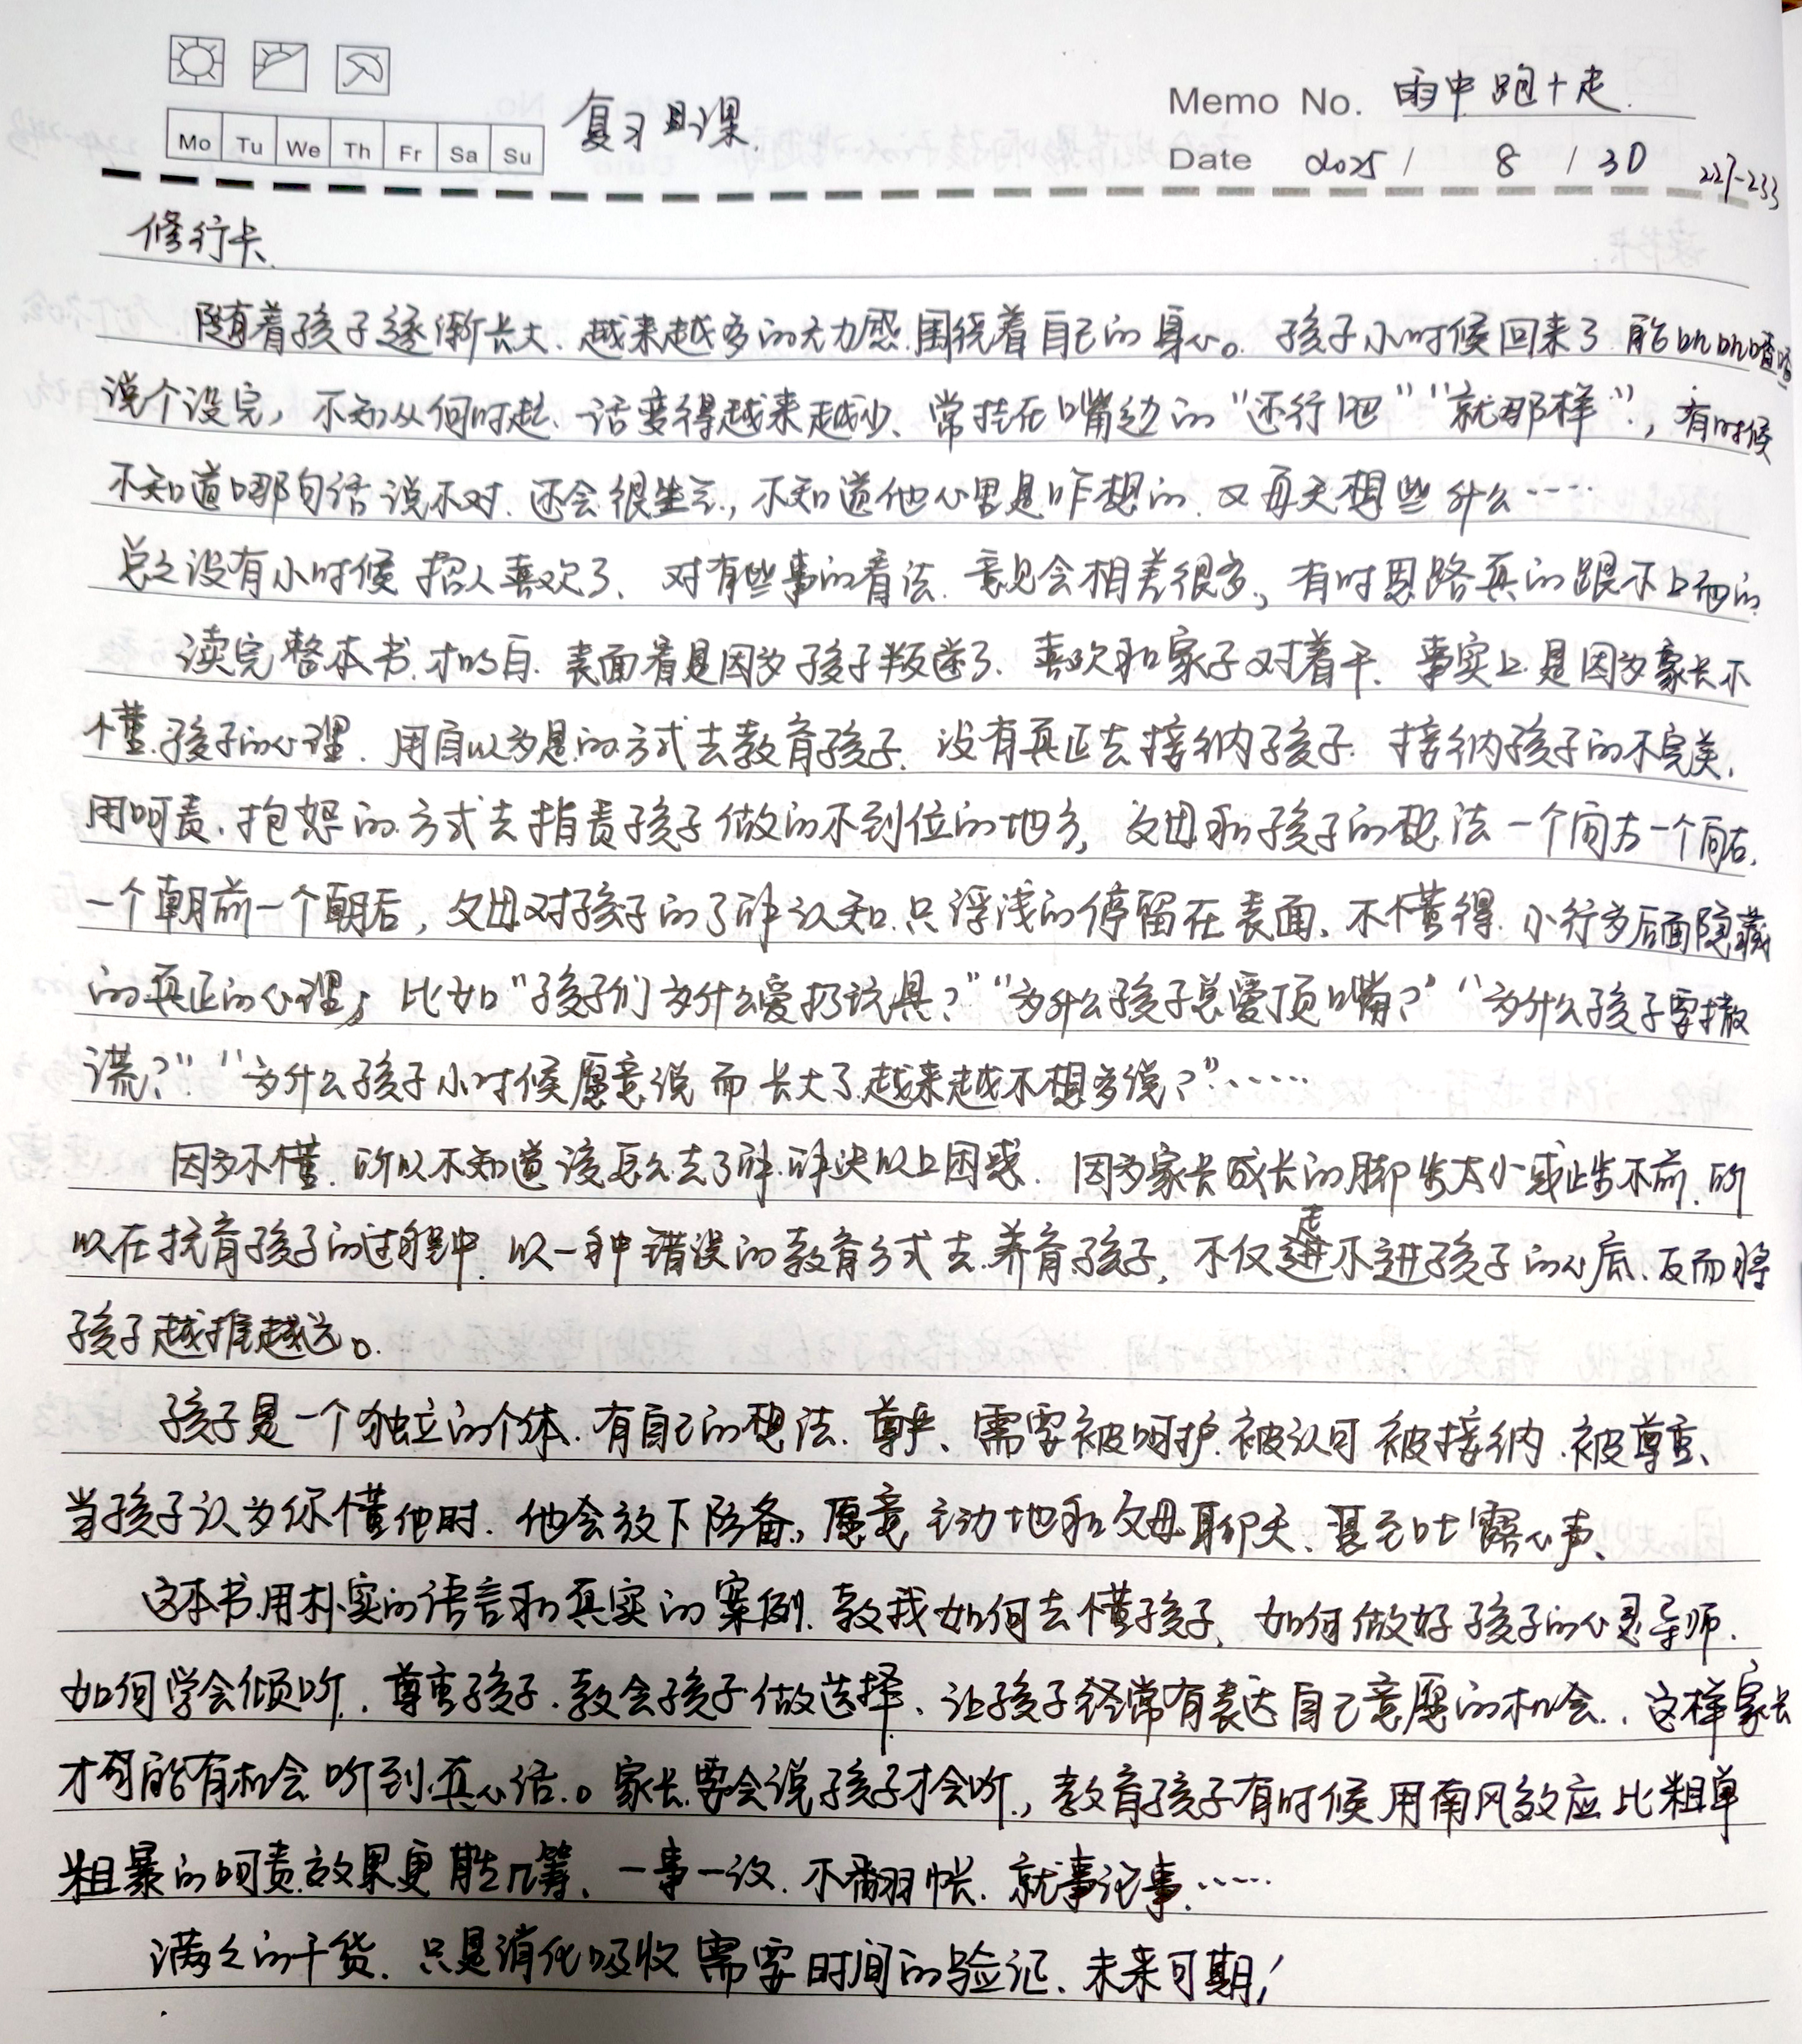 复习日课.
Memo No. 雨中跑十走.
Mo Tu We Th Fr Sa Su
Date 2025 / 8 / 30 227-233
修行卡.
随着孩子逐渐长大、越来越多的无力感围绕着自己的身心。孩子小时候回来了能叽叽喳喳
说个没完，不知从何时起、话变得越来越少、常挂在嘴边的“还行吧”“就那样”，有时候
不知道哪句话说不对.还会很生气，不知道他心里是咋想的.又每天想些什么……
总之没有小时候招人喜欢了、对有些事的看法.意见会相差很多，有时思路真的跟不上他的.
读完整本书.才明白.表面看是因为孩子叛逆了.喜欢和家子对着干.事实上是因为家长不
懂孩子的心理.用自以为是的方式去教育孩子.没有真正去接纳孩子.接纳孩子的不完美.
用呵责、抱怨的方式去指责孩子做的不到位的地方，父母和孩子的想法一个向左一个向右.
一个朝前一个朝后，父母对孩子的了解认知只浮浅的停留在表面、不懂得.小行为后面隐藏
的真正的心理，比如“孩子们为什么爱扔玩具？”“为什么孩子总爱顶嘴？”“为什么孩子要撒
谎？”“为什么孩子小时候愿意说而长大了越来越不想多说？”……
因为不懂.所以不知道该怎么去了解.解决以上困惑.因为家长成长的脚步太小或止步不前.所
以在抚育孩子的过程中.以一种错误的教育方式去养育孩子，不仅走不进孩子的心底.反而将
孩子越推越远。
孩子是一个独立的个体.有自己的想法.尊严、需要被呵护.被认可.被接纳.被尊重、
当孩子认为你懂他时.他会放下防备，愿意主动地和父母聊天、甚至吐露心声、
这本书用朴实的语言和真实的案例.教我如何去懂孩子、如何做好孩子的心灵导师.
如何学会倾听.尊重孩子.教会孩子做选择、让孩子经常有表达自己意愿的机会.、这样家长
才可能有机会听到真心话。家长要会说孩子才会听，教育孩子有时候用南风效应比粗单
粗暴的呵责效果更胜几筹、一事一议.不翻帐.就事论事……
满满的干货.只是消化吸收需要时间的验证、未来可期！